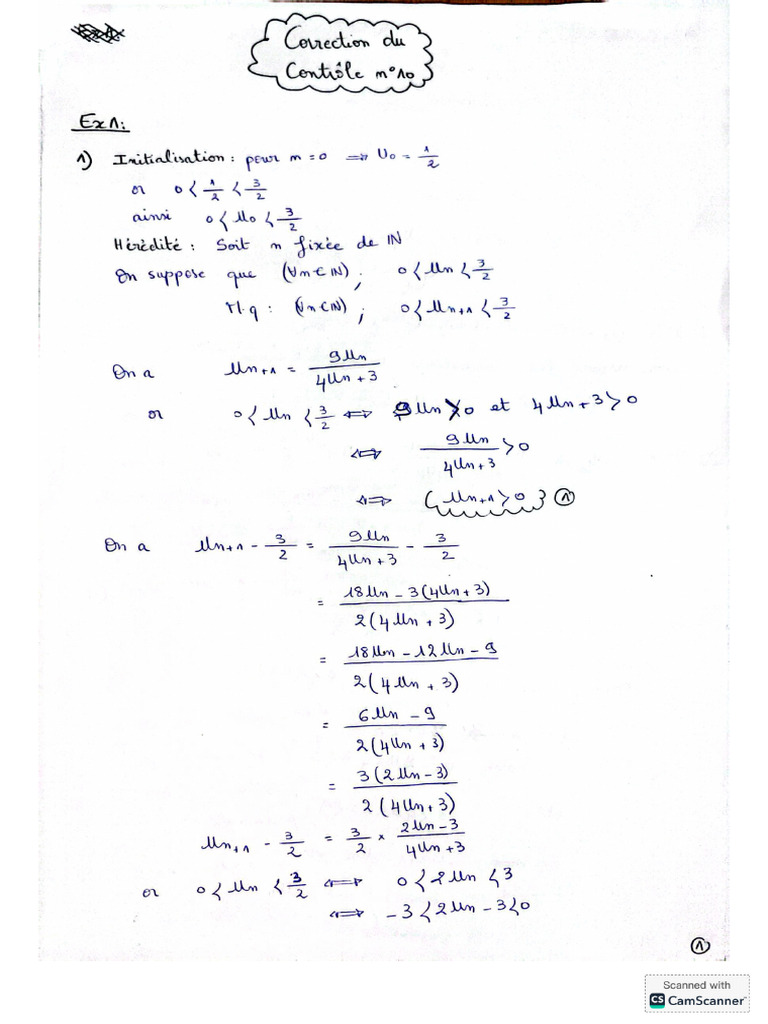 Correction du
Contrôle n°10
Ex1:
1) Initialisation : pour n = 0 ⟹ U0 = 1/2
or 0 < 1/2 < 3/2
ainsi 0 < U0 < 3/2
Hérédité : Soit n fixée de IN
On suppose que (∀n∈IN) ; 0 < Un < 3/2
M.q : (∀n∈IN) ; 0 < Un+1 < 3/2
On a Un+1 = 9Un / (4Un + 3)
or 0 < Un < 3/2 ⟺ 9Un > 0 et 4Un + 3 > 0
⟺ 9Un / (4Un + 3) > 0
⟺ (Un+1 > 0) ①
On a Un+1 - 3/2 = 9Un / (4Un + 3) - 3/2
= (18Un - 3(4Un + 3)) / (2(4Un + 3))
= (18Un - 12Un - 9) / (2(4Un + 3))
= (6Un - 9) / (2(4Un + 3))
= 3(2Un - 3) / (2(4Un + 3))
Un+1 - 3/2 = 3/2 × (2Un - 3) / (4Un + 3)
or 0 < Un < 3/2 ⟺ 0 < 2Un < 3
⟺ -3 < 2Un - 3 < 0
①
Scanned with
CS CamScanner